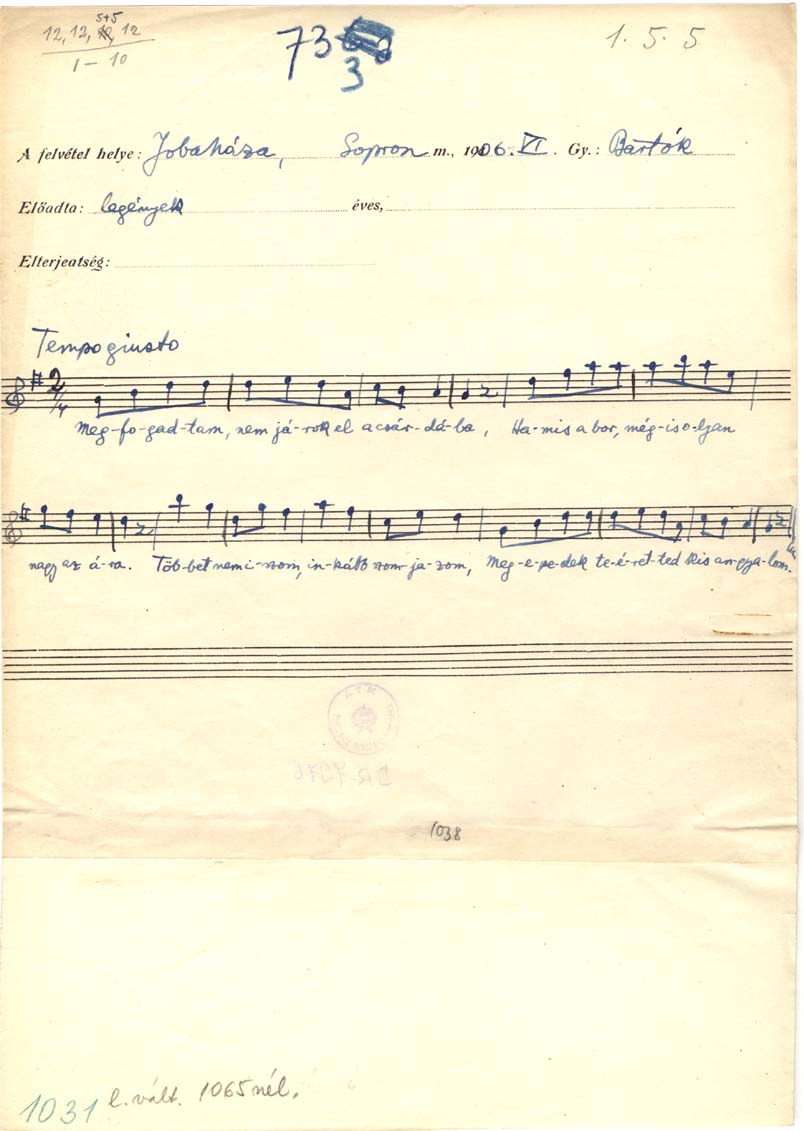 5+5
12, 12, 12, 12
1 – 10
73
3
1. 5. 5
A felvétel helye: Jobaháza, Sopron m., 1906. VI. Gy.: Bartók
Előadta: legények éves,
Elterjedtség:
Tempo giusto
2/4
Meg-fo-gad-tam, nem já-rok el a csár-dá-ba, Ha-mis a bor, még-is o-lyan
nagy az á-ra. Töb-bet nem i-szom, in-kább szom-ja-zom, Meg-e-pe-dek te-é-ret-ted kis an-gya-lom.
1038
1031 l. vált. 1065nél.